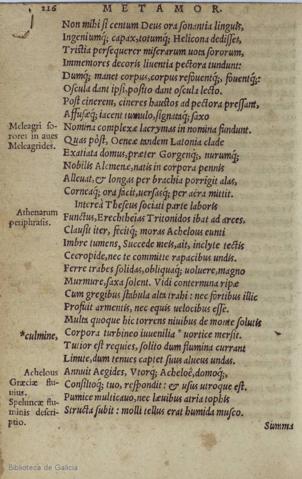 226
METAMOR.
Non mihi si centum Deus ora sonantia linguis,
Ingeniumq; capax, totumq; Helicona dedisset,
Tristia persequerer miserarum uota sororum,
Immemores decoris liuentia pectora tundunt:
Dumq; manet corpus, corpus refouentq;, fouentq;:
Oscula dant ipsi, posito dant oscula lecto.
Post cinerem, cineres haustos ad pectora pressant,
Affusæq; iacent tumulo, signataq; saxo
Nomina complexæ lacrymas in nomina fundunt.
Quas pòst, Oeneæ tandem Latonia clade
Exatiata domus, præter Gorgenq;, nurumq;
Nobilis Alcmenæ, natis in corpora pennis
Alleuat, & longas per brachia porrigit alas,
Corneaq; ora facit, uersasq; per aëra mittit.
Intereà Theseus sociati parte laboris
Functus, Erechtheias Tritonidos ibat ad arces.
Clausit iter, fecitq; moras Achelous eunti
Imbre tumens, Succede meis, ait, inclyte tectis
Cecropide, nec te committe rapacibus undis.
Ferre trabes solidas, obliquaq; uoluere, magno
Murmure, saxa solent. Vidi contermina ripæ
Cum gregibus stabula alta trahi: nec fortibus illic
Profuit armentis, nec equis uelocibus esse.
Multa quoque hic torrens niuibus de monte solutis
Corpora turbineo iuuenilia * uortice mersit.
Tutior est requies, solito dum flumina currant
Limite, dum tenues capiet suus alueus undas.
Annuit Aegides, Vtorq; Acheloë, domoq;,
Consilioq; tuo, respondit: & usus utroque est.
Pumice multicauo, nec læuibus atria tophis
Structa subit: molli tellus erat humida musco.
Summa
Meleagri so-
rores in aues
Meleagrides.
Athenarum
periphrasis.
*culmine,
Achelous
Græciæ flu-
uius.
Speluncæ flu-
minis descri-
ptio.
Biblioteca de Galicia